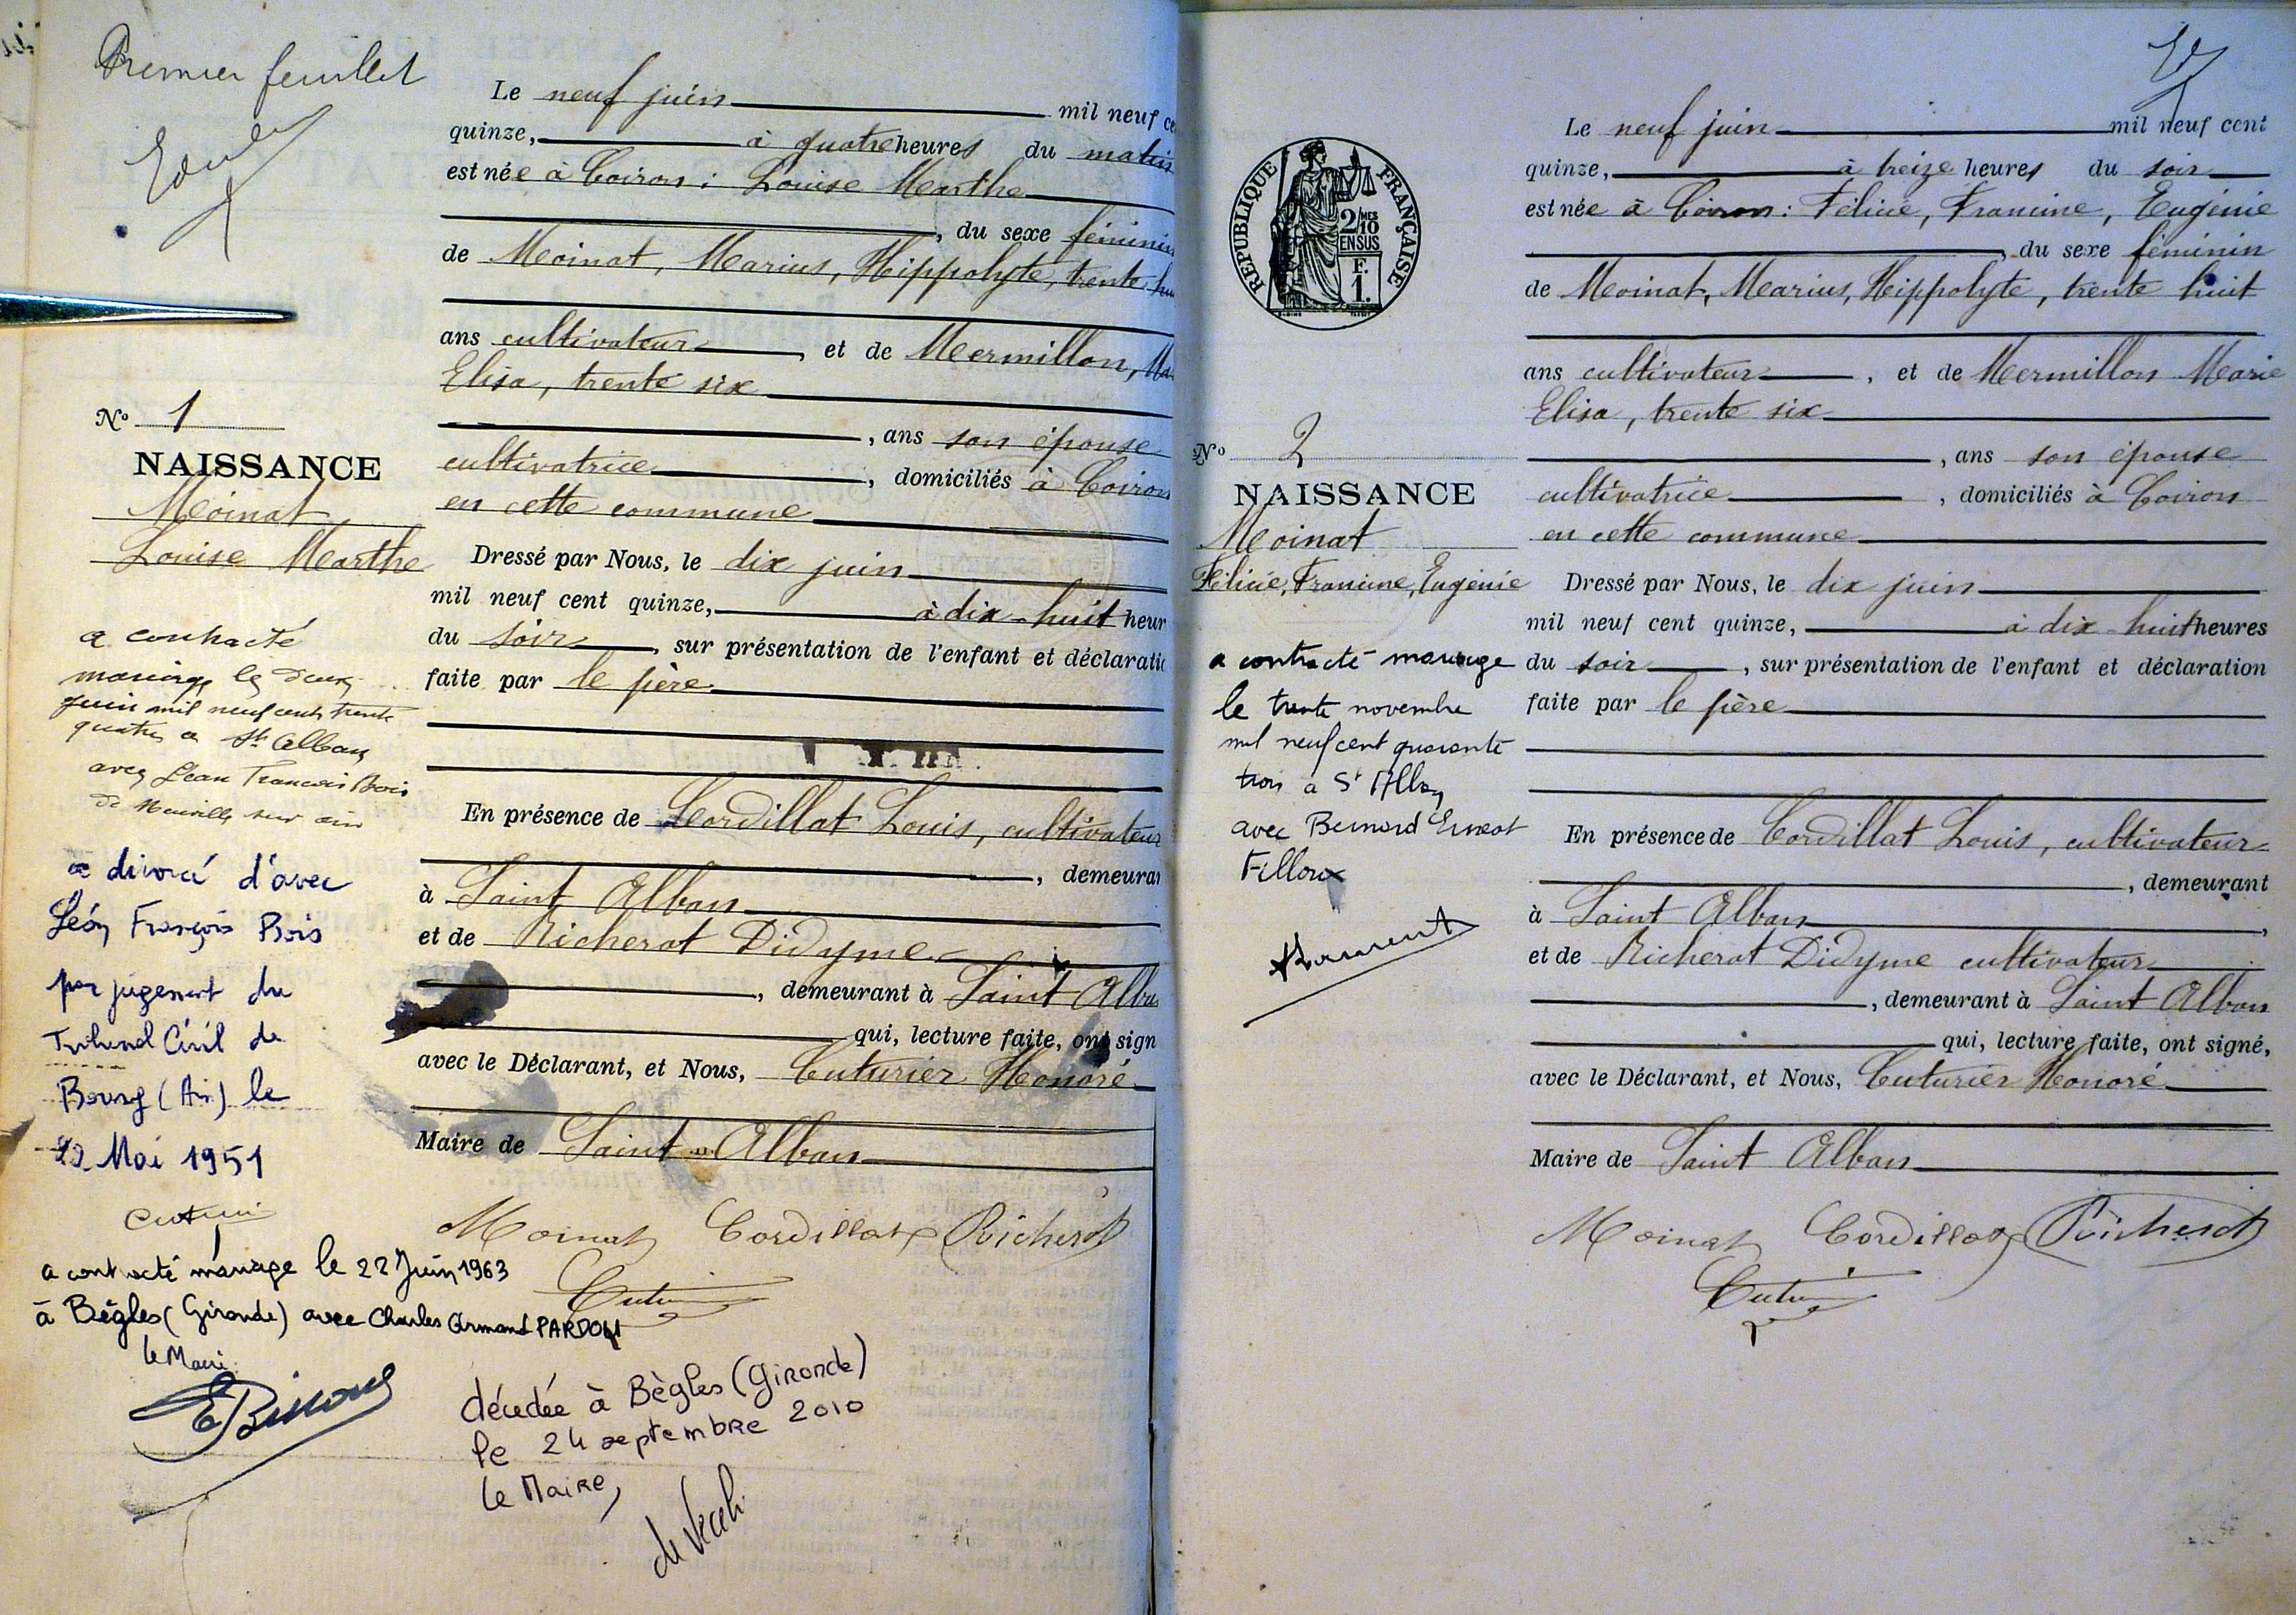 Premier feuillet
Le neuf juin mil neuf ce
quinze, à quatre heures du matin
est née à Coiron : Louise Marthe
, du sexe féminin
de Moinat, Marius, Hippolyte, trente hu
ans cultivateur , et de Mermillon, Ma
Elisa, trente six
, ans son épouse
cultivatrice , domiciliés à Coiron
en cette commune
Dressé par Nous, le dix juin
mil neuf cent quinze, à dix-huit heur
du soir , sur présentation de l'enfant et déclaratio
faite par le père
En présence de Cordillat Louis, cultivateur
, demeuran
à Saint Alban
et de Richerot Didyme
, demeurant à Saint Alba
qui, lecture faite, ont sign
avec le Déclarant, et Nous, Cuturier Honoré
Maire de Saint-Alban
Moinat Cordillat Richerot
Cuturier
No 1
NAISSANCE
Moinat
Louise Marthe
a contracté
mariage le deux
juin mil neuf cent trente
quatre a St Alban
avec Léon François Bois
de Neuville sur ain
a divorcé d'avec
Léon François Bois
par jugement du
Tribunal Civil de
Bourg (Ain) le
Mai 1951
a contracté mariage le 22 Juin 1963
à Bègles (Gironde) avec Charles Armand PARDON
le Maire
décédée à Bègles (Gironde)
le 24 septembre 2010
le Maire,
Le neuf juin mil neuf cent
quinze, à treize heures du soir
est née à Coiron : Félicie, Francine, Eugénie
, du sexe féminin
de Moinat, Marius, Hippolyte, trente huit
ans cultivateur , et de Mermillon Marie
Elisa, trente six
, ans son épouse
cultivatrice , domiciliés à Coiron
en cette commune
Dressé par Nous, le dix juin
mil neuf cent quinze, à dix-huit heures
du soir , sur présentation de l'enfant et déclaration
faite par le père
En présence de Cordillat Louis, cultivateur
, demeurant
à Saint Alban ,
et de Richerot Didyme cultivateur
, demeurant à Saint Alban
qui, lecture faite, ont signé,
avec le Déclarant, et Nous, Cuturier Honoré
Maire de Saint Alban
Moinat Cordillat Richerot
Cuturier
RÉPUBLIQUE FRANÇAISE
2/MES
10
EN SUS
F.
1.
No 2
NAISSANCE
Moinat
Félicie, Francine, Eugénie
a contracté mariage
le trente novembre
mil neuf cent quarante
trois à St Alban
avec Bernard Ernest
Filloux